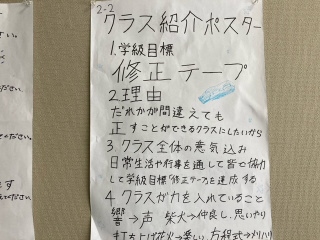 2-2
クラス紹介ポスター
1.学級目標
修正テープ
2.理由
だれかが間違えても
正すことができるクラスにしたいから
3.クラス全体の意気込み
日常生活や行事を通して皆で協力
して学級目標「修正テープ」を達成する
4.クラスが力を入れていること
響→声 柴犬→仲良し、思いやり
打ち上げ花火→楽しい、方程式→メリハリ